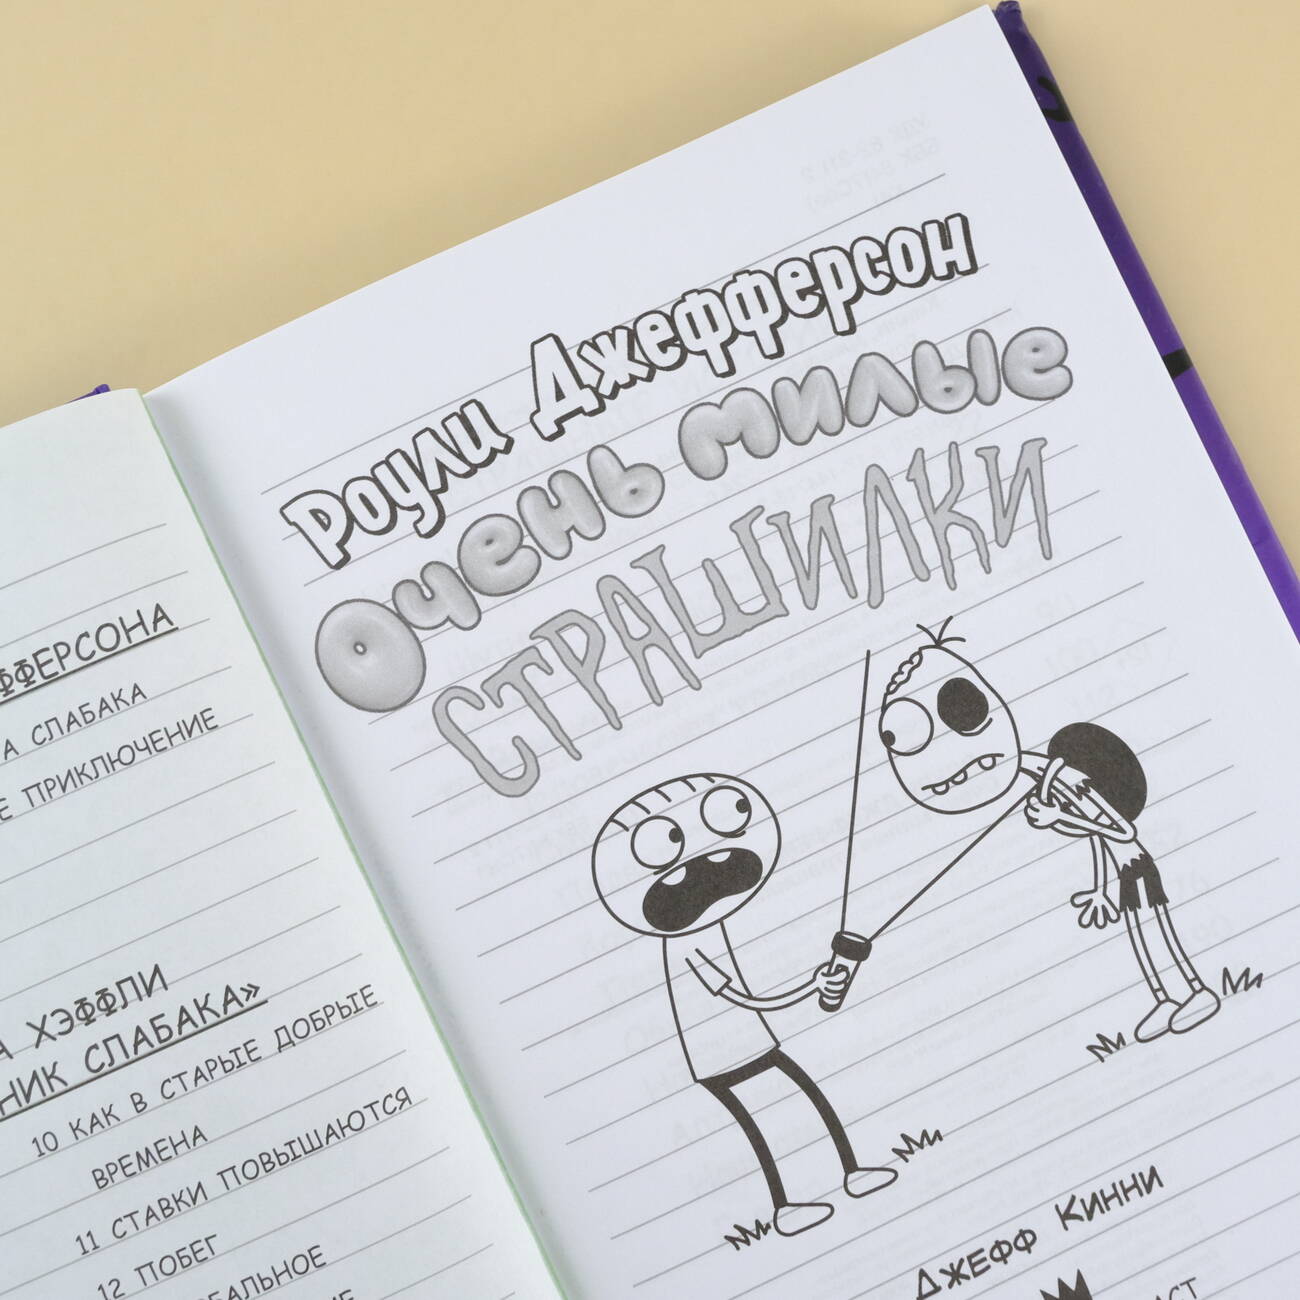 ФФЕРСОНА
А СЛАБАКА
Е ПРИКЛЮЧЕНИЕ
А ХЭФФЛИ
НИК СЛАБАКА»
10 КАК В СТАРЫЕ ДОБРЫЕ
ВРЕМЕНА
11 СТАВКИ ПОВЫШАЮТСЯ
12 ПОБЕГ
Роули Джефферсон
Очень милые
СТРАШИЛКИ
ДЖЕФФ КИННИ